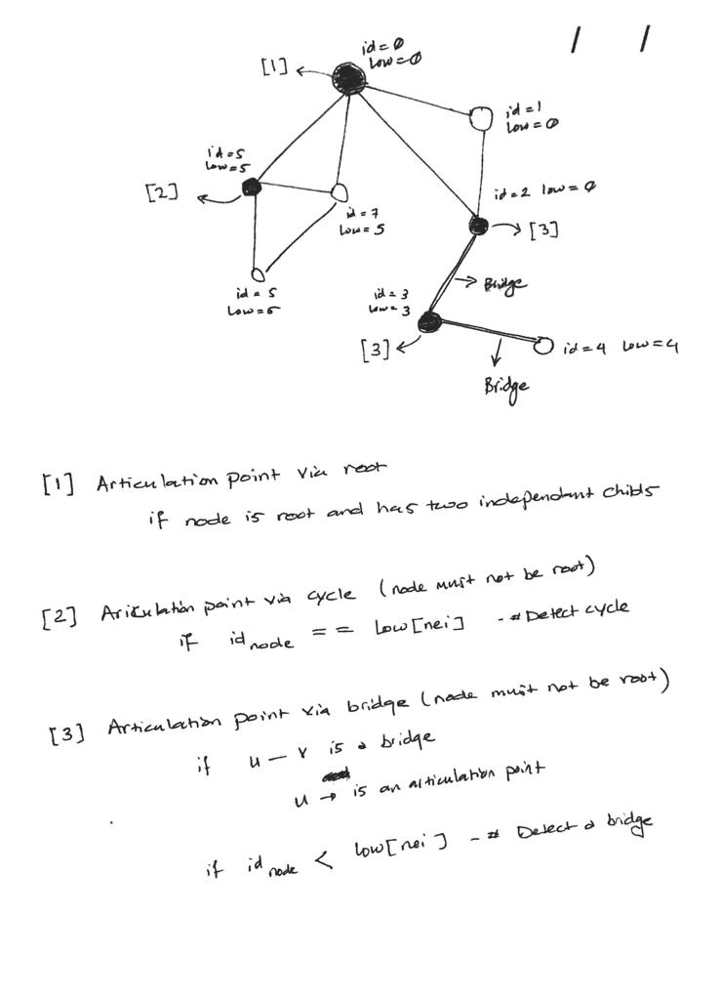 / /
id=0
Low=0
[1]
id=1
Low=0
id=5
Low=5
[2]
id=7
Low=5
id=2 low=0
[3]
Bridge
id=5
Low=5
id=3
Low=3
[3]
id=4 Low=4
Bridge
[1] Articulation point via root
if node is root and has two independant childs
[2] Ariculation point via cycle (node must not be root)
if id node == Low[nei] -# Detect cycle
[3] Articulation point via bridge (node must not be root)
if u — v is a bridge
u → is an articulation point
if id node < low[nei] -# Detect a bridge